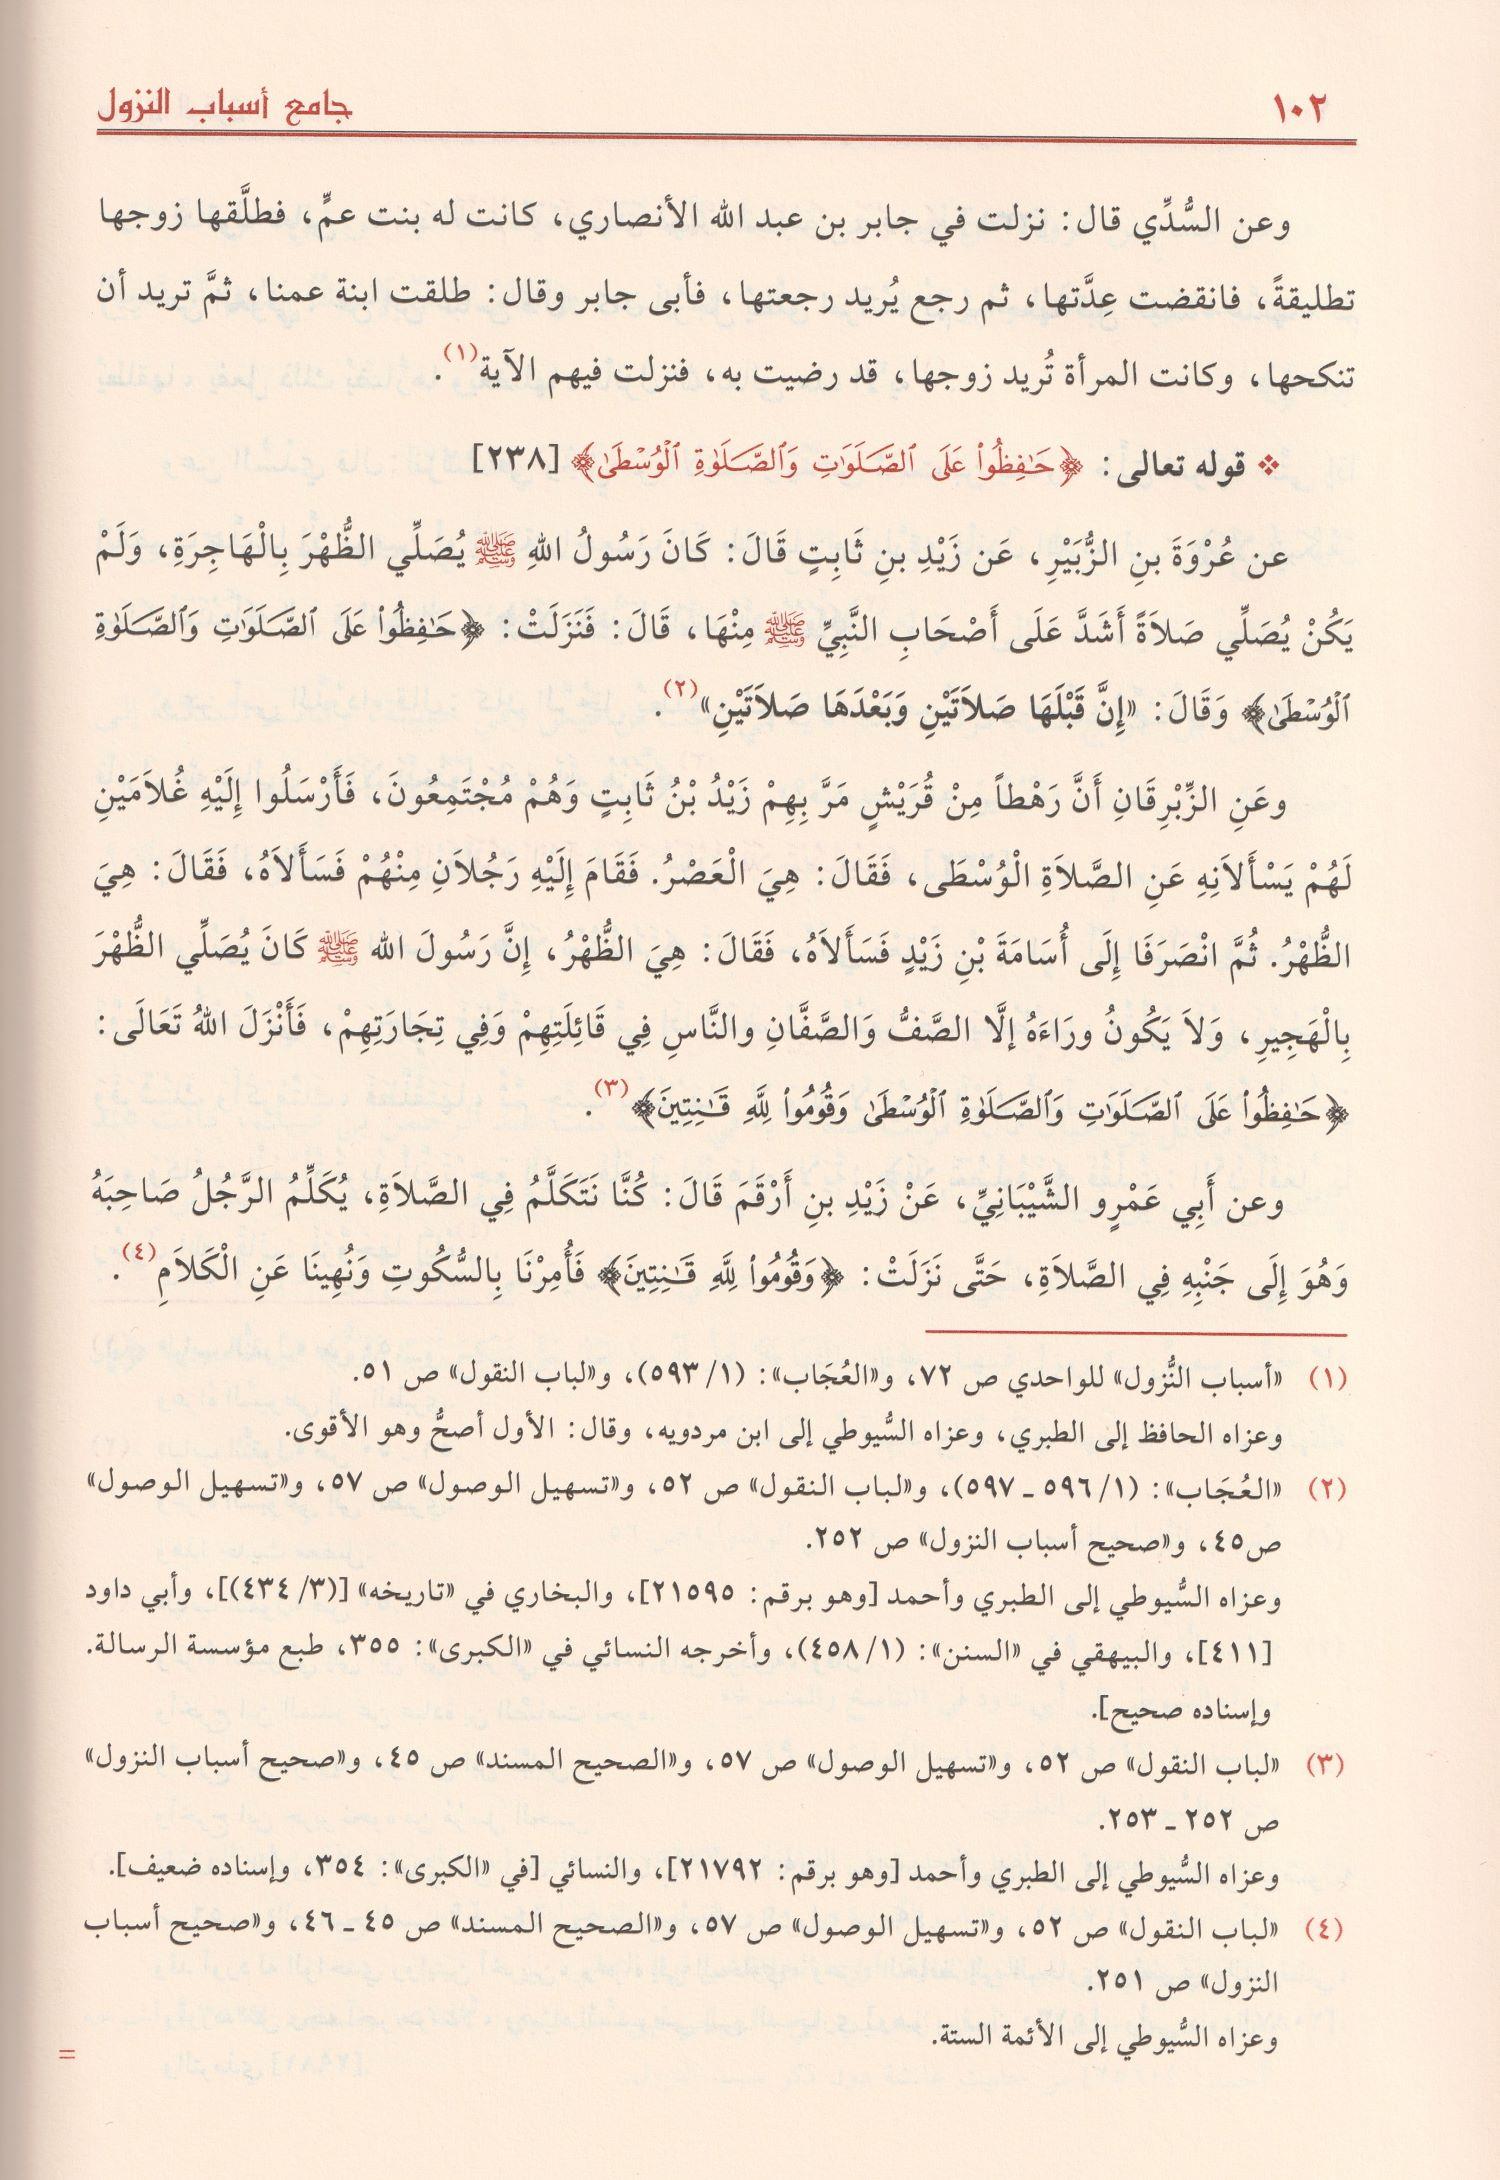 ١٠٢ جامع أسباب النزول
وعن السُّدِّي قال: نزلت في جابر بن عبد الله الأنصاري، كانت له بنت عمٍّ، فطلَّقها زوجها
تطليقةً، فانقضت عِدَّتها، ثم رجع يُريد رجعتها، فأبى جابر وقال: طلقت ابنة عمنا، ثمَّ تريد أن
تنكحها، وكانت المرأة تُريد زوجها، قد رضيت به، فنزلت فيهم الآية(١).
❖ قوله تعالى: ﴿حَٰفِظُواْ عَلَى ٱلصَّلَوَٰتِ وَٱلصَّلَوٰةِ ٱلْوُسْطَىٰ﴾ [٢٣٨]
عن عُرْوَةَ بنِ الزُّبَيْرِ، عَن زَيْدِ بنِ ثَابِتٍ قَالَ: كَانَ رَسُولُ اللهِ ﷺ يُصَلِّي الظُّهْرَ بِالْهَاجِرَةِ، وَلَمْ
يَكُنْ يُصَلِّي صَلاَةً أَشَدَّ عَلَى أَصْحَابِ النَّبِيِّ ﷺ مِنْهَا، قَالَ: فَنَزَلَتْ: ﴿حَٰفِظُواْ عَلَى ٱلصَّلَوَٰتِ وَٱلصَّلَوٰةِ
ٱلْوُسْطَىٰ﴾ وَقَالَ: «إِنَّ قَبْلَهَا صَلاَتَيْنِ وَبَعْدَهَا صَلاَتَيْنِ»(٢).
وعَنِ الزِّبْرِقَانِ أَنَّ رَهْطاً مِنْ قُرَيْشٍ مَرَّ بِهِمْ زَيْدُ بْنُ ثَابِتٍ وَهُمْ مُجْتَمِعُونَ، فَأَرْسَلُوا إِلَيْهِ غُلاَمَيْنِ
لَهُمْ يَسْأَلاَنِهِ عَنِ الصَّلاَةِ الْوُسْطَى، فَقَالَ: هِيَ الْعَصْرُ. فَقَامَ إِلَيْهِ رَجُلاَنِ مِنْهُمْ فَسَأَلاَهُ، فَقَالَ: هِيَ
الظُّهْرُ. ثُمَّ انْصَرَفَا إِلَى أُسَامَةَ بْنِ زَيْدٍ فَسَأَلاَهُ، فَقَالَ: هِيَ الظُّهْرُ، إِنَّ رَسُولَ الله ﷺ كَانَ يُصَلِّي الظُّهْرَ
بِالْهَجِيرِ، وَلاَ يَكُونُ ورَاءَهُ إلَّا الصَّفُّ وَالصَّفَّانِ والنَّاسِ فِي قَائِلَتِهِمْ وَفِي تِجَارَتِهِمْ، فَأَنْزَلَ اللهُ تَعَالَى:
﴿حَٰفِظُواْ عَلَى ٱلصَّلَوَٰتِ وَٱلصَّلَوٰةِ ٱلْوُسْطَىٰ وَقُومُواْ لِلَّهِ قَٰنِتِينَ﴾(٣).
وعن أَبِي عَمْرٍو الشَّيْبَانِيِّ، عَنْ زَيْدِ بنِ أَرْقَمَ قَالَ: كُنَّا نَتَكَلَّمُ فِي الصَّلاَةِ، يُكَلِّمُ الرَّجُلُ صَاحِبَهُ
وَهُوَ إِلَى جَنْبِهِ فِي الصَّلاَةِ، حَتَّى نَزَلَتْ: ﴿وَقُومُواْ لِلَّهِ قَٰنِتِينَ﴾ فَأُمِرْنَا بِالسُّكُوتِ وَنُهِينَا عَنِ الْكَلاَمِ(٤).
(١) «أسباب النُّزول» للواحدي ص ٧٢، و«العُجَاب»: (١/ ٥٩٣)، و«لباب النقول» ص ٥١.
وعزاه الحافظ إلى الطبري، وعزاه السُّيوطي إلى ابن مردويه، وقال: الأول أصحُّ وهو الأقوى.
(٢) «العُجَاب»: (١/ ٥٩٦ ـ ٥٩٧)، و«لباب النقول» ص ٥٢، و«تسهيل الوصول» ص ٥٧، و«تسهيل الوصول»
ص٤٥، و«صحيح أسباب النزول» ص ٢٥٢.
وعزاه السُّيوطي إلى الطبري وأحمد [وهو برقم: ٢١٥٩٥]، والبخاري في «تاريخه» [(٣/ ٤٣٤)]، وأبي داود
[٤١١]، والبيهقي في «السنن»: (١/ ٤٥٨)، وأخرجه النسائي في «الكبرى»: ٣٥٥، طبع مؤسسة الرسالة.
وإسناده صحيح].
(٣) «لباب النقول» ص ٥٢، و«تسهيل الوصول» ص ٥٧، و«الصحيح المسند» ص ٤٥، و«صحيح أسباب النزول»
ص ٢٥٢ ـ ٢٥٣.
وعزاه السُّيوطي إلى الطبري وأحمد [وهو برقم: ٢١٧٩٢]، والنسائي [في «الكبرى»: ٣٥٤، وإسناده ضعيف].
(٤) «لباب النقول» ص ٥٢، و«تسهيل الوصول» ص ٥٧، و«الصحيح المسند» ص ٤٥ ـ ٤٦، و«صحيح أسباب
النزول» ص ٢٥١.
وعزاه السُّيوطي إلى الأئمة الستة.
=